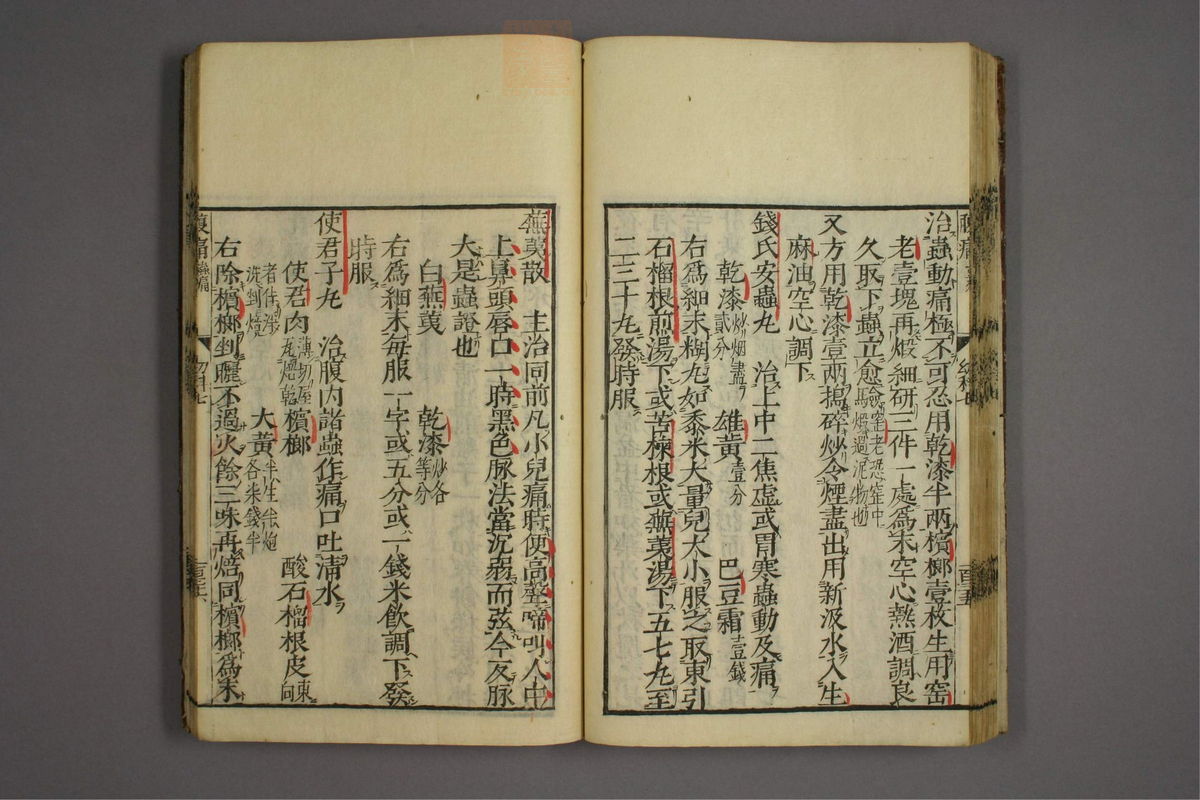 治蟲動痛極不可忍用乾漆半兩檳榔壹枚生用窑
老壹塊再煅細研三件一處爲末空心熱酒調良
久取下蟲立愈
又方用乾漆壹兩搗碎炒令煙盡出用新汲水入生
麻油空心調下
錢氏安蟲丸　治上中二焦虛或胃寒蟲動及痛
乾漆炒烟盡貳分　雄黄壹分　巴豆霜壹錢
右爲細末糊丸如黍米大量兒大小服之取東引
石榴根煎湯下或苦楝根或蕪荑湯下五七丸至
二三十丸發時服
蕪荑散　主治同前凡小兒痛時便高聲啼叫人中
上鼻頭唇口一時黑色脉法當沉弱而弦今反脉
大是蟲證也
白蕪荑　乾漆炒各等分
右爲細末每服一字或五分或一錢米飲調下發
時服
使君子丸　治腹内諸蟲作痛口吐清水
使君肉薄切瓦焙乾　檳榔　酸石榴根皮東向
者佳淨洗剉焙　大黄半生半炮各朱錢半
右除檳榔剉曬不過火餘三味再焙同檳榔爲末